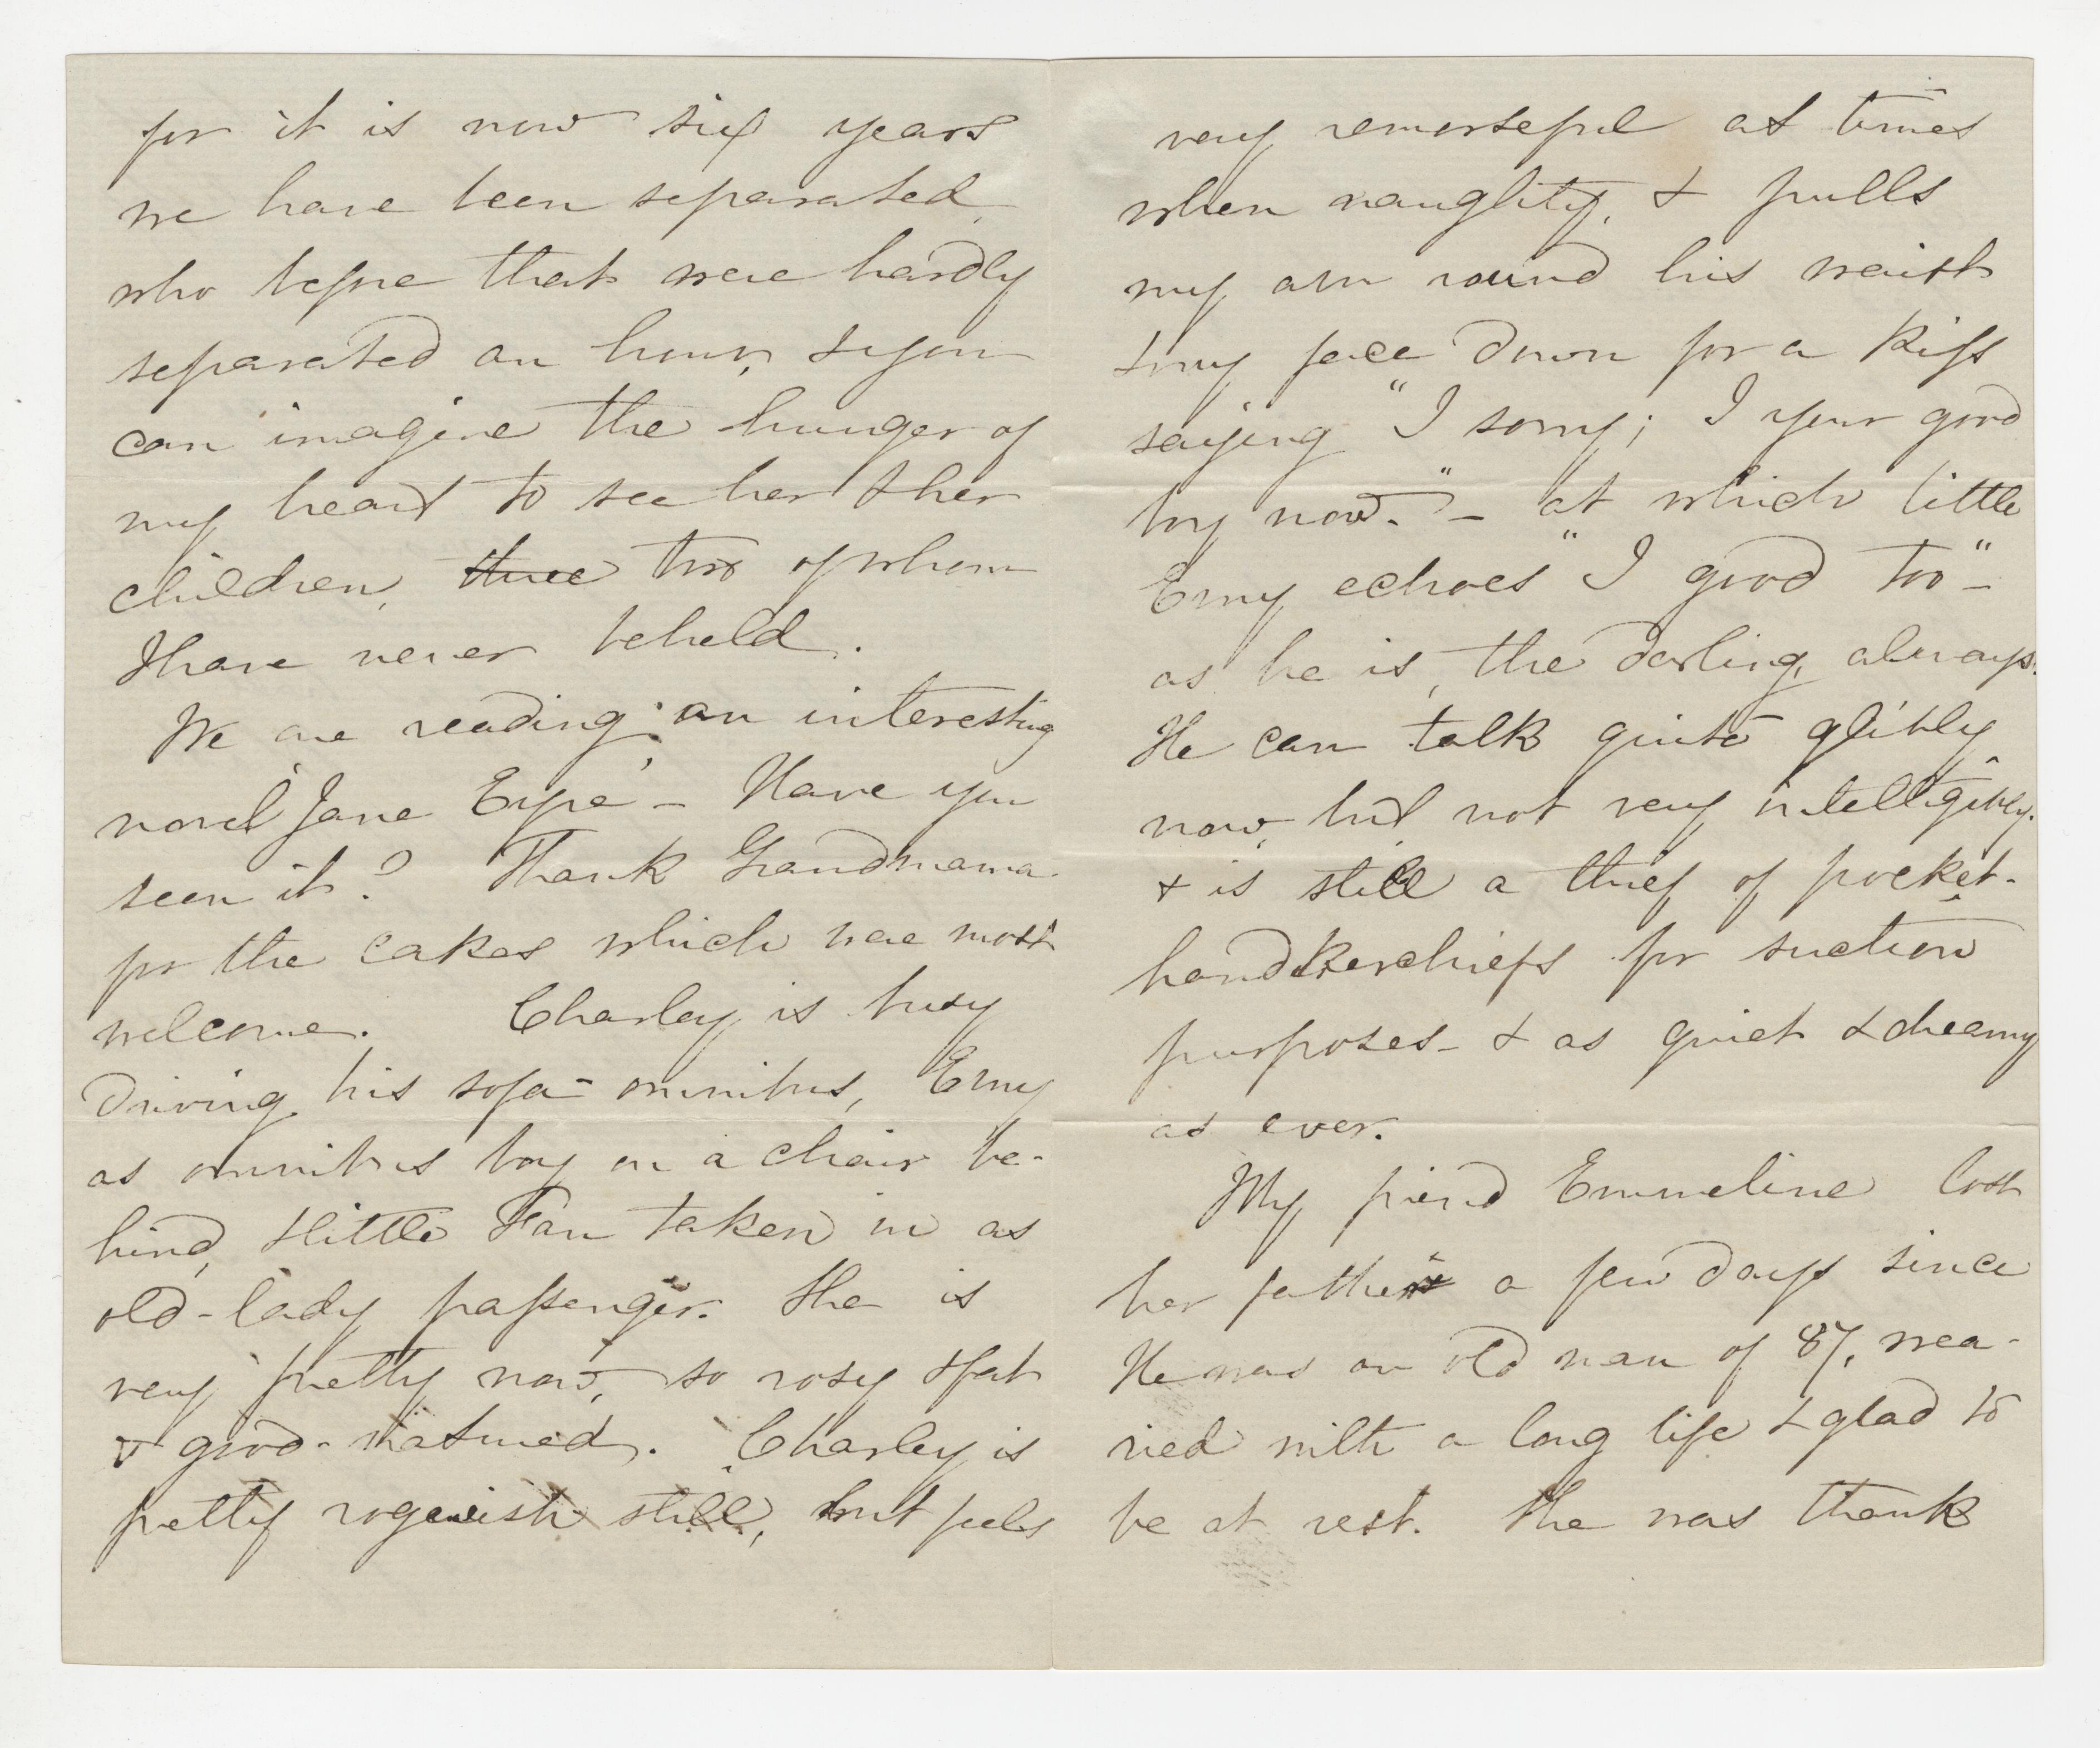 for it is now six years
we have been separated,
who before that were hardly
separated an hour, & you
can imagine the hunger of
my heart to see her & her
children, three two of whom
I have never beheld.
We are reading an interesting
novel "Jane Eyre" - Have you
seen it? Thank Grandmama
for the cakes which were most
welcome. Charley is busy
driving his sofa-omnibus, Erny
as omnibus boy on a chair be-
hind, & little Fan taken in as
old-lady passenger. She is
very pretty now, so rosy & fat
& good-natured. Charley is
pretty rogueish still, but feels
very remorseful at times
when naughty, & pulls
my arm round his waist
& my face down for a kiss
saying "I sorry; I your good
boy now." - at which little
Erny echoes "I good too" -
as he is, the darling, always.
He can talk quite glibly
now, but not very intelligibly.
& is still a thief of pocket-
handkerchiefs for suction
purposes - & as quiet & dreamy
as ever.
My friend Emmeline lost
her father a few days since
He was an old man of 87, wea-
ried with a long life & glad to
be at rest. She was thank